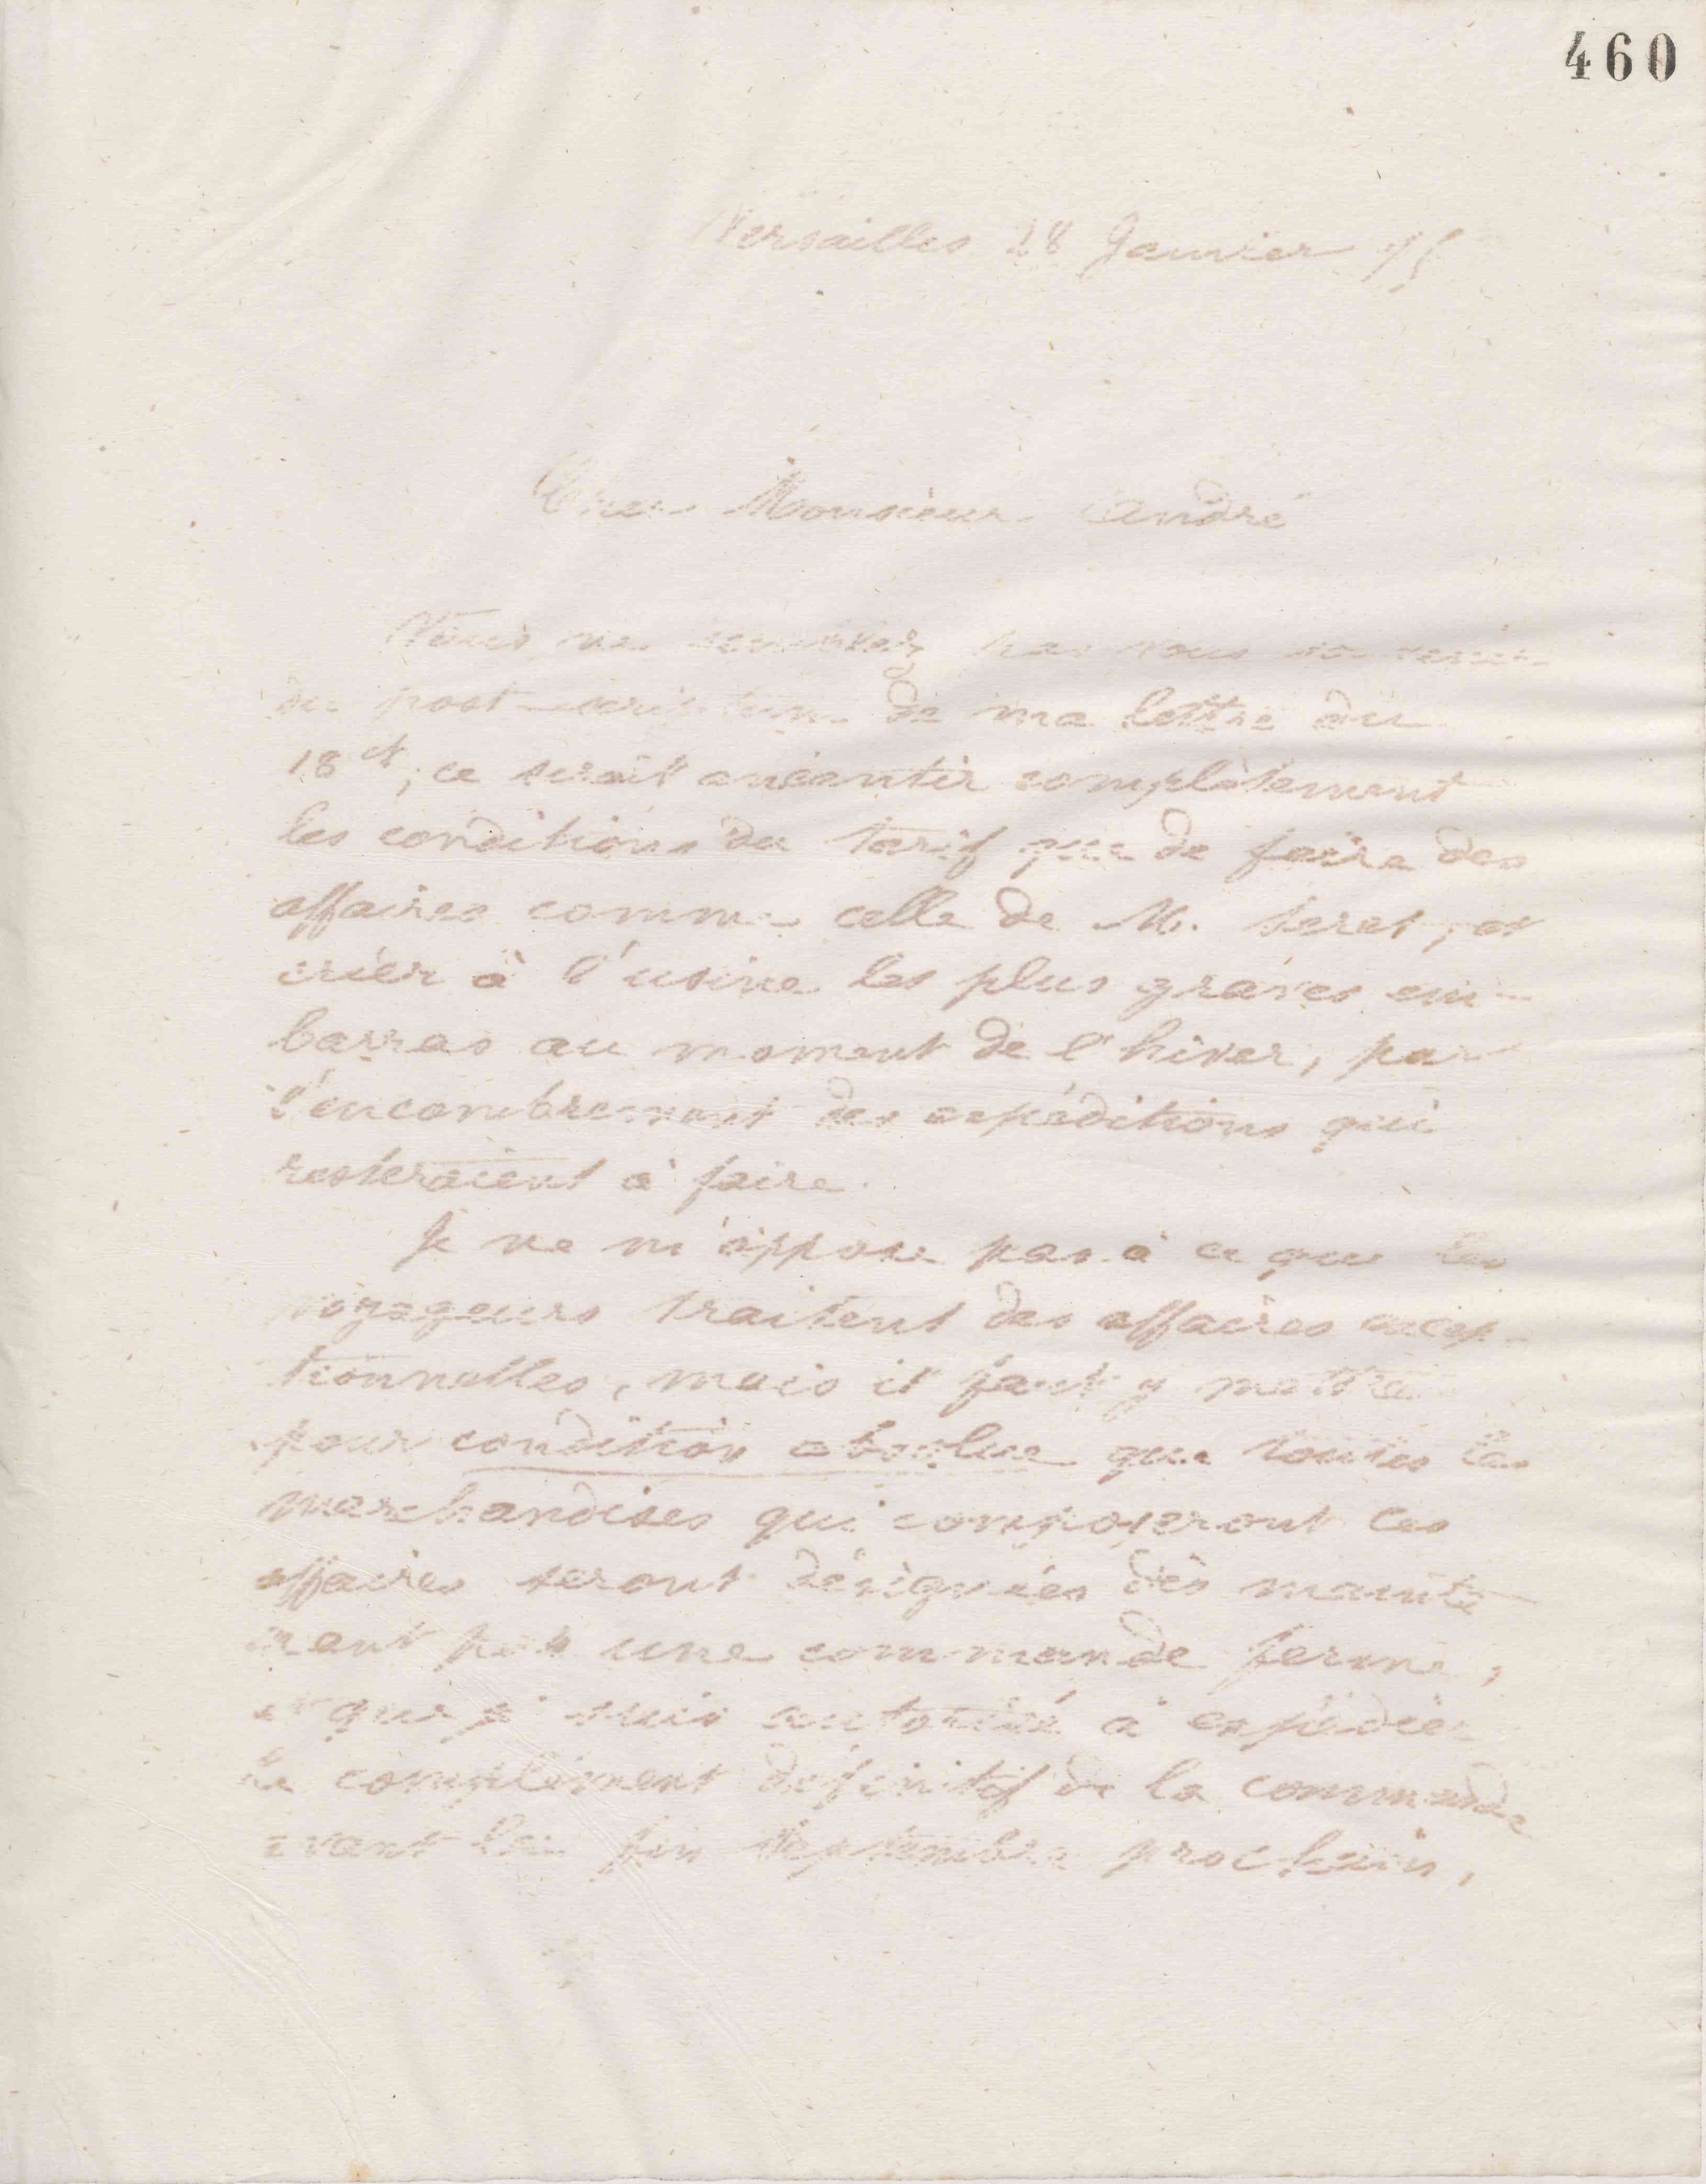 460
Versailles 28 Janvier 75
Cher Monsieur André
Vous ne semblez pas vous souvenir
du post-scriptum de ma lettre du
18 ct; ce serait anéantir complètement
les conditions du tarif que de faire des
affaires comme celle de M. Seret, et
créer à l'usine les plus graves em-
barras au moment de l'hiver, par
l'encombrement des expéditions qui
resteraient à faire.
Je ne m'oppose pas à ce que les
voyageurs traitent des affaires excep-
tionnelles, mais il faut y mettre
pour condition absolue que toutes les
marchandises qui composeront ces
affaires seront désignées dès mainte
nant par une commande ferme,
et que je suis autorisé à expédier
le complément définitif de la commande
avant la fin septembre prochain,